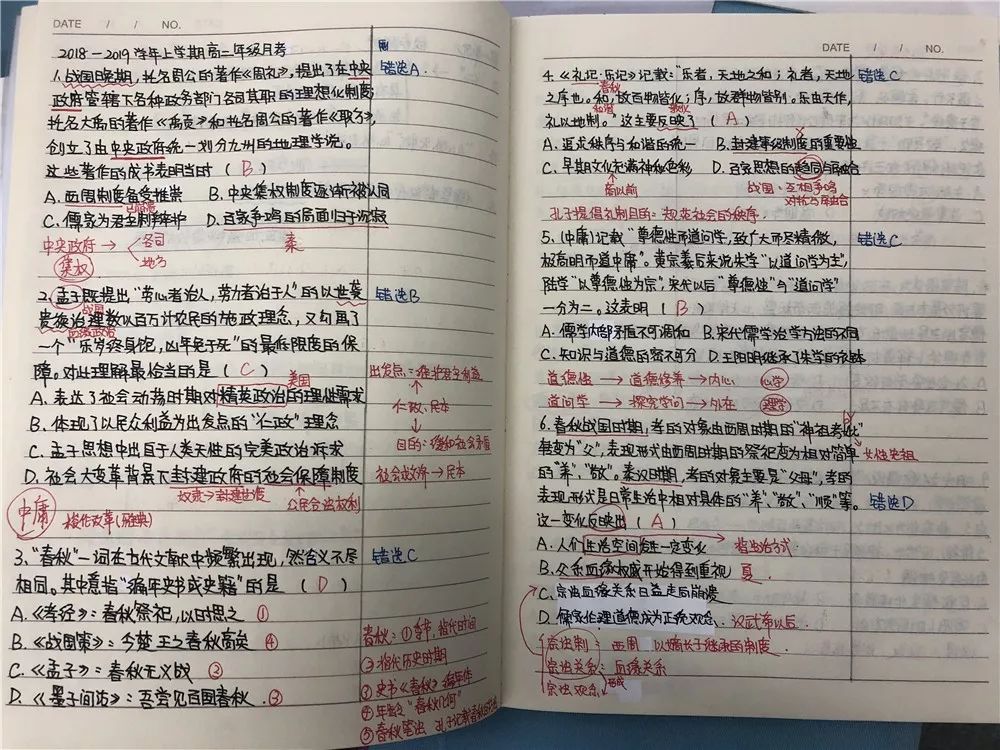 DATE / / NO.
2018-2019学年上学期高二年级月考
1.战国晚期,托名周公的著作《周礼》,提出了在中央
错选A.
政府管辖下各种政务部门各司其职的理想化制度;
托名大禹的著作《禹贡》和托名周公的著作《职方》,
创立了由中央政府统一划分九州的地理学说。
这些著作的成书表明当时( B )
A.西周制度备受推崇 B.中央集权制度逐渐被认同
C.儒家为君主制辩护 D.百家争鸣的局面归于沉寂
中央政府→各司
地方
秦
集权
2.孟子既提出“劳心者治人,劳力者治于人”的以世袭
错选B
战国
贵族治理数以百万计农民的施政理念,又勾画了
血缘政治
一个“乐岁终身饱,凶年免于死”的最低限度的保
障。对此理解最恰当的是( C )
美国
A.表达了社会动荡时期对精英政治的理性需求
B.体现了以民众利益为出发点的“仁政”理念
C.孟子思想中出自于人类天性的完美政治诉求
D.社会大变革背景下封建政府的社会保障制度
奴隶→封建社会
公民合法权利
出发点:维护君主利益
仁政、民本
目的:缓和社会矛盾
社会救济→民本
中庸
梭伦改革(雅典)
3.“春秋”一词在古代文献中频繁出现,然含义不尽
错选C
相同。其中意指“编年史书或史籍”的是( D )
A.《孝经》:春秋祭祀,以时思之 ①
B.《战国策》:今楚王之春秋高矣 ④
C.《孟子》:春秋无义战 ②
D.《墨子间诂》:吾尝见百国春秋. ③
春秋:①季节,指代时间
②指代历史时期
③史书《春秋》编年体
④年龄 “春秋几何”
⑤春秋笔法
DATE / / NO.
4.《礼记·乐记》记载:“乐者,天地之和;礼者,天地
错选C
春秋
之序也。和,故百物皆化;序,故群物皆别。乐由天作,
和谐
教化
礼以地制。”这主要反映了( A )
A.追求秩序与和谐的统一 B.封建等级制度的重要性
C.早期文化充满神秘色彩 D.百家思想的趋同与融合
商以前
战国:互相争鸣
对抗与融合
孔子提倡礼制目的:规范社会的秩序.
5.《中庸》记载“尊德性而道问学,致广大而尽精微,
错选C
极高明而道中庸”。黄宗羲后来说朱学“以道问学为主”,
陆学“以尊德性为宗”.宋代以后“尊德性”与“道问学”
一分为二。这表明( B )
A.儒学内部矛盾不可调和 B.宋代儒学治学方法的不同
C.知识与道德的密不可分 D.王阳明继承了朱学的衣钵
道德性→道德修养→内心 心学
道问学→探究学问→外在 理学
6.春秋战国时期,孝的对象由西周时期的“神祖考妣”
渐变为“父”,表现形式由西周时期的祭祀变为相对简单
女性先祖
的“养”、“敬”。秦汉时期,孝的对象主要是“父母”,孝的
表现形式是日常生活中相对具体的“养”、“敬”、“顺”等。
错选D
这一变化反映出( A )
A.人们生活空间发生一定变化
B.父系血缘权威开始得到重视 夏.
C.宗法血缘关系日益走向崩溃
D.儒家伦理道德成为正统观念. 汉武帝以后.
宗法制:西周 以嫡长子继承的制度.
宗法关系:血缘关系
宗法观念